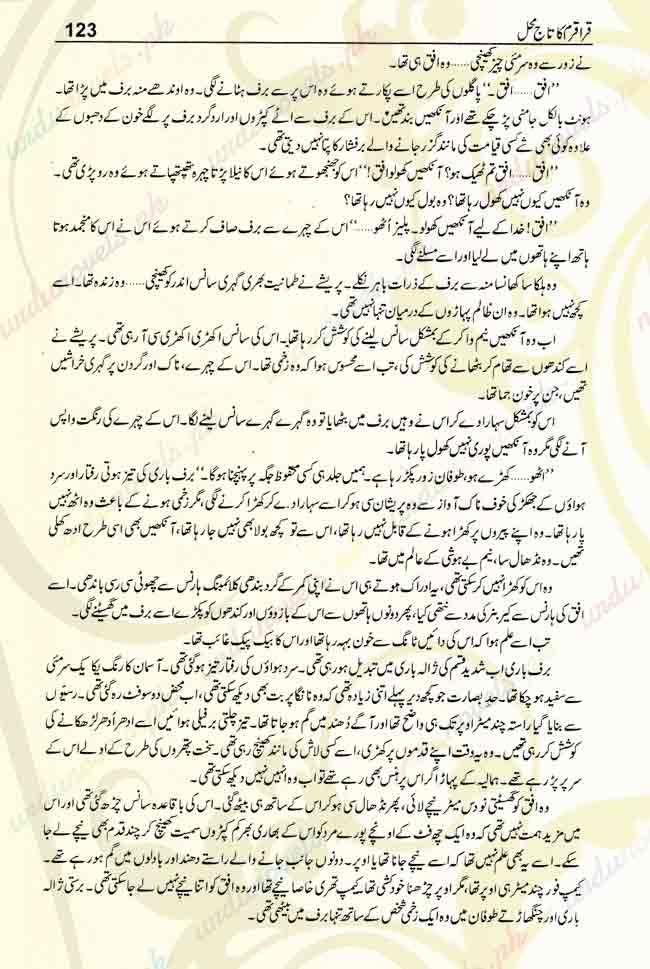 قراقرم کا تاج محل
123
نے زور سے وہ سرمئی چیز کھینچی...... وہ افق ہی تھا۔
”افق...... افق۔“ پاگلوں کی طرح اسے پکارتے ہوئے وہ اس پر سے برف ہٹانے لگی۔ وہ اوندھے منہ برف میں پڑا تھا۔
ہونٹ بالکل جامنی پڑ چکے تھے اور آنکھیں بند تھیں۔ اس کے برف سے اٹے کپڑوں اور اردگرد برف پر لگے خون کے دھبوں کے
علاوہ کوئی بھی شے کسی قیامت کی مانند گزر جانے والے برفشار کا پتا نہیں دیتی تھی۔
”افق...... افق تم ٹھیک ہو؟ آنکھیں کھولو افق!“ اس کو جھنجھوتے ہوئے اس کا نیلا پڑتا چہرہ تھپتھپاتے ہوئے وہ رو پڑی تھی۔
وہ آنکھیں کیوں نہیں کھول رہا تھا؟ وہ بول کیوں نہیں رہا تھا؟
”افق! خدا کے لیے آنکھیں کھولو۔ پلیز اُٹھو......“ اس کے چہرے سے برف صاف کرتے ہوئے اس نے اس کا منجمد ہوتا
ہاتھ اپنے ہاتھوں میں لے لیا اور اسے مسلنے لگی۔
وہ ہلکا سا کھانسا منہ سے برف کے ذرات باہر نکلے۔ پریشے نے طمانیت بھری گہری سانس اندر کو کھینچی...... وہ زندہ تھا۔ اسے
کچھ نہیں ہوا تھا۔ وہ ان ظالم پہاڑوں کے درمیان تنہا نہیں تھی۔
اب وہ آنکھیں نیم وا کر کے بمشکل سانس لینے کی کوشش کر رہا تھا۔ اس کی سانس اکھڑی اکھڑی سی آ رہی تھی۔ پریشے نے
اسے کندھوں سے تھام کر بٹھانے کی کوشش کی، تب اسے محسوس ہوا کہ وہ زخمی تھا۔ اس کے چہرے، ناک اور گردن پر گہری خراشیں
تھیں، جن پر خون جما تھا۔
اس کو بمشکل سہارا دے کر اس نے وہیں برف میں بٹھایا تو وہ گہرے گہرے سانس لینے لگا۔ اس کے چہرے کی رنگت واپس
آنے لگی مگر وہ آنکھیں پوری نہیں کھول پا رہا تھا۔
”اٹھو...... کھڑے ہو، طوفان زور پکڑ رہا ہے۔ ہمیں جلد ہی کسی محفوظ جگہ پر پہنچنا ہوگا۔“ برف باری کی تیز ہوتی رفتار اور سرد
ہواؤں کے جھکڑ کی خوف ناک آواز سے وہ پریشان سی ہو کر اسے سہارا دے کر کھڑا کرنے لگی، مگر زخمی ہونے کے باعث وہ اٹھ نہیں
پا رہا تھا۔ وہ اپنے پیروں پر کھڑا ہونے کے قابل نہیں رہا تھا، اس سے تو کچھ بولا بھی نہیں جا رہا تھا، آنکھیں بھی اسی طرح ادھ کھلی
تھیں۔ وہ نڈھال سا، نیم بے ہوشی کے عالم میں تھا۔
وہ اس کو کھڑا نہیں کر سکتی تھی، یہ ادراک ہوتے ہی اس نے اپنی کمر کے گرد بندھی کلائمبنگ ہارنس سے چھوٹی سی رسی باندھی۔ اسے
افق کی ہارنس سے کیربنر کی مدد سے نتھی کیا، پھر دونوں ہاتھوں سے اس کے بازوؤں اور کندھوں کو پکڑے اسے برف میں گھسیٹنے لگی۔
تب اسے علم ہوا کہ اس کی دائیں ٹانگ سے خون بہہ رہا تھا اور اس کا بیک پیک غائب تھا۔
برف باری اب شدید قسم کی ژالہ باری میں تبدیل ہو رہی تھی۔ سرد ہواؤں کی رفتار تیز ہو گئی تھی۔ آسمان کا رنگ یکایک سرمئی
سے سفید ہو چکا تھا۔ حد بصارت جو کچھ دیر پہلے اتنی زیادہ تھی کہ وہ نانگا پربت بھی دیکھ سکتی تھی، اب محض دو سو فٹ رہ گئی تھی۔ رسیوں
سے بنایا گیا راستہ چند میٹر اوپر تک ہی واضح تھا اور آگے دُھند میں گم ہو جاتا تھا۔ تیز چلتی برفیلی ہوائیں اسے ادھر اُدھر لڑھکانے کی
کوشش کر رہی تھیں۔ وہ بہ دقت اپنے قدموں پر کھڑی، اسے کسی لاش کی مانند کھینچ رہی تھی۔ سخت پتھروں کی طرح کے اولے اس کے
سر پر پڑ رہے تھے۔ ہمالیہ کے پہاڑ اگر اس پر ہنس بھی رہے تھے تو اب وہ انہیں نہیں دیکھ سکتی تھی۔
وہ افق کو گھسیٹتی نو دس میٹر نیچے لائی، پھر نڈھال سی ہو کر اس کے ساتھ ہی بیٹھ گئی۔ اس کی باقاعدہ سانس چڑھ گئی تھی اور اس
میں مزید ہمت نہیں تھی کہ وہ ایک چھ فٹ کے اونچے پورے مرد کو اس کے بھاری بھرکم کپڑوں سمیت کھینچ کر چند قدم بھی نیچے لے جا
سکے۔ اسے یہ بھی علم نہیں تھا کہ اسے نیچے جانا تھا یا اوپر۔ دونوں جانب جانے والے راستے دھند اور بادلوں میں گم ہو رہے تھے۔
کیمپ فور چند میٹر ہی اوپر تھا، مگر اوپر چڑھنا خودکشی تھا، کیمپ تھری خاصا نیچے تھا اور وہ افق کو اتنا نیچے نہیں لے جا سکتی تھی۔ برستی ژالہ
باری اور چنگھاڑتے طوفان میں وہ ایک زخمی شخص کے ساتھ تنہا برف میں بیٹھی تھی۔